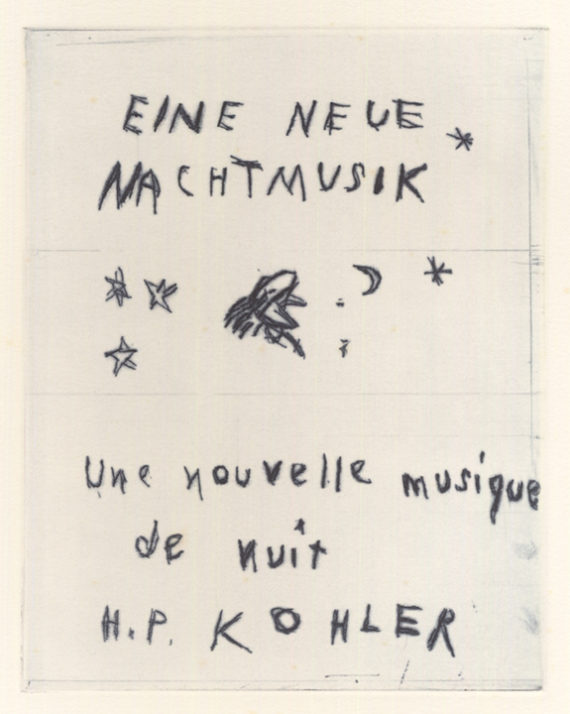 EINE NEUE
NACHTMUSIK
Une nouvelle musique
de nuit
H.P. KOHLER